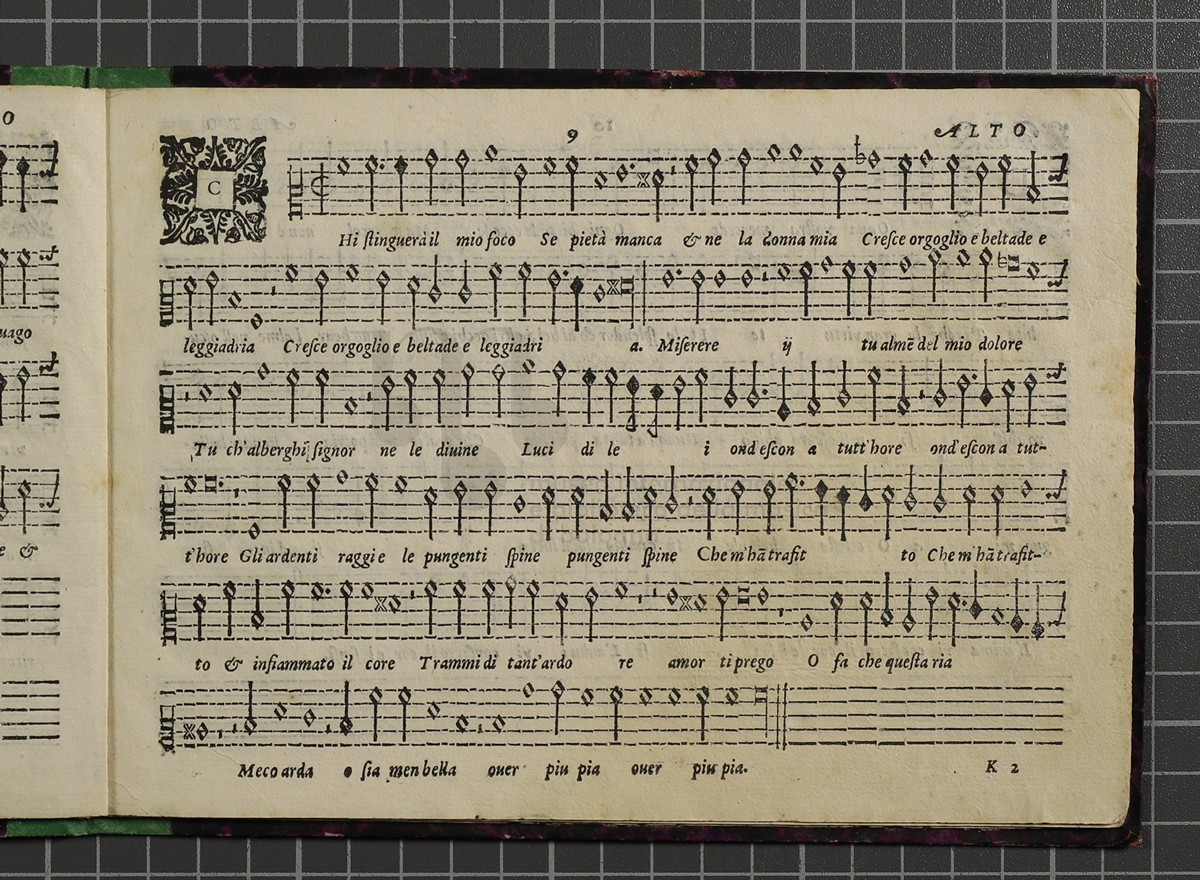 O
uago
e &
9
ALTO.
C
Hi ſtinguerà il mio foco Se pietà manca & ne la donna mia Creſce orgoglio e beltade e
leggiadria Creſce orgoglio e beltade e leggiadri a. Miſerere ij tu alme del mio dolore
Tu ch'alberghi ſignor ne le diuine Luci di le i ond'eſcon a tutt'hore ond'eſcon a tut-
t'hore Gli ardenti raggi e le pungenti ſpine pungenti ſpine Che m'hã trafit to Che m'hã trafit-
to & infiammato il core Trammi di tant'ardo re amor ti prego O fa che queſta ria
Meco arda o ſia men bella ouer piu pia ouer piu pia.
K 2